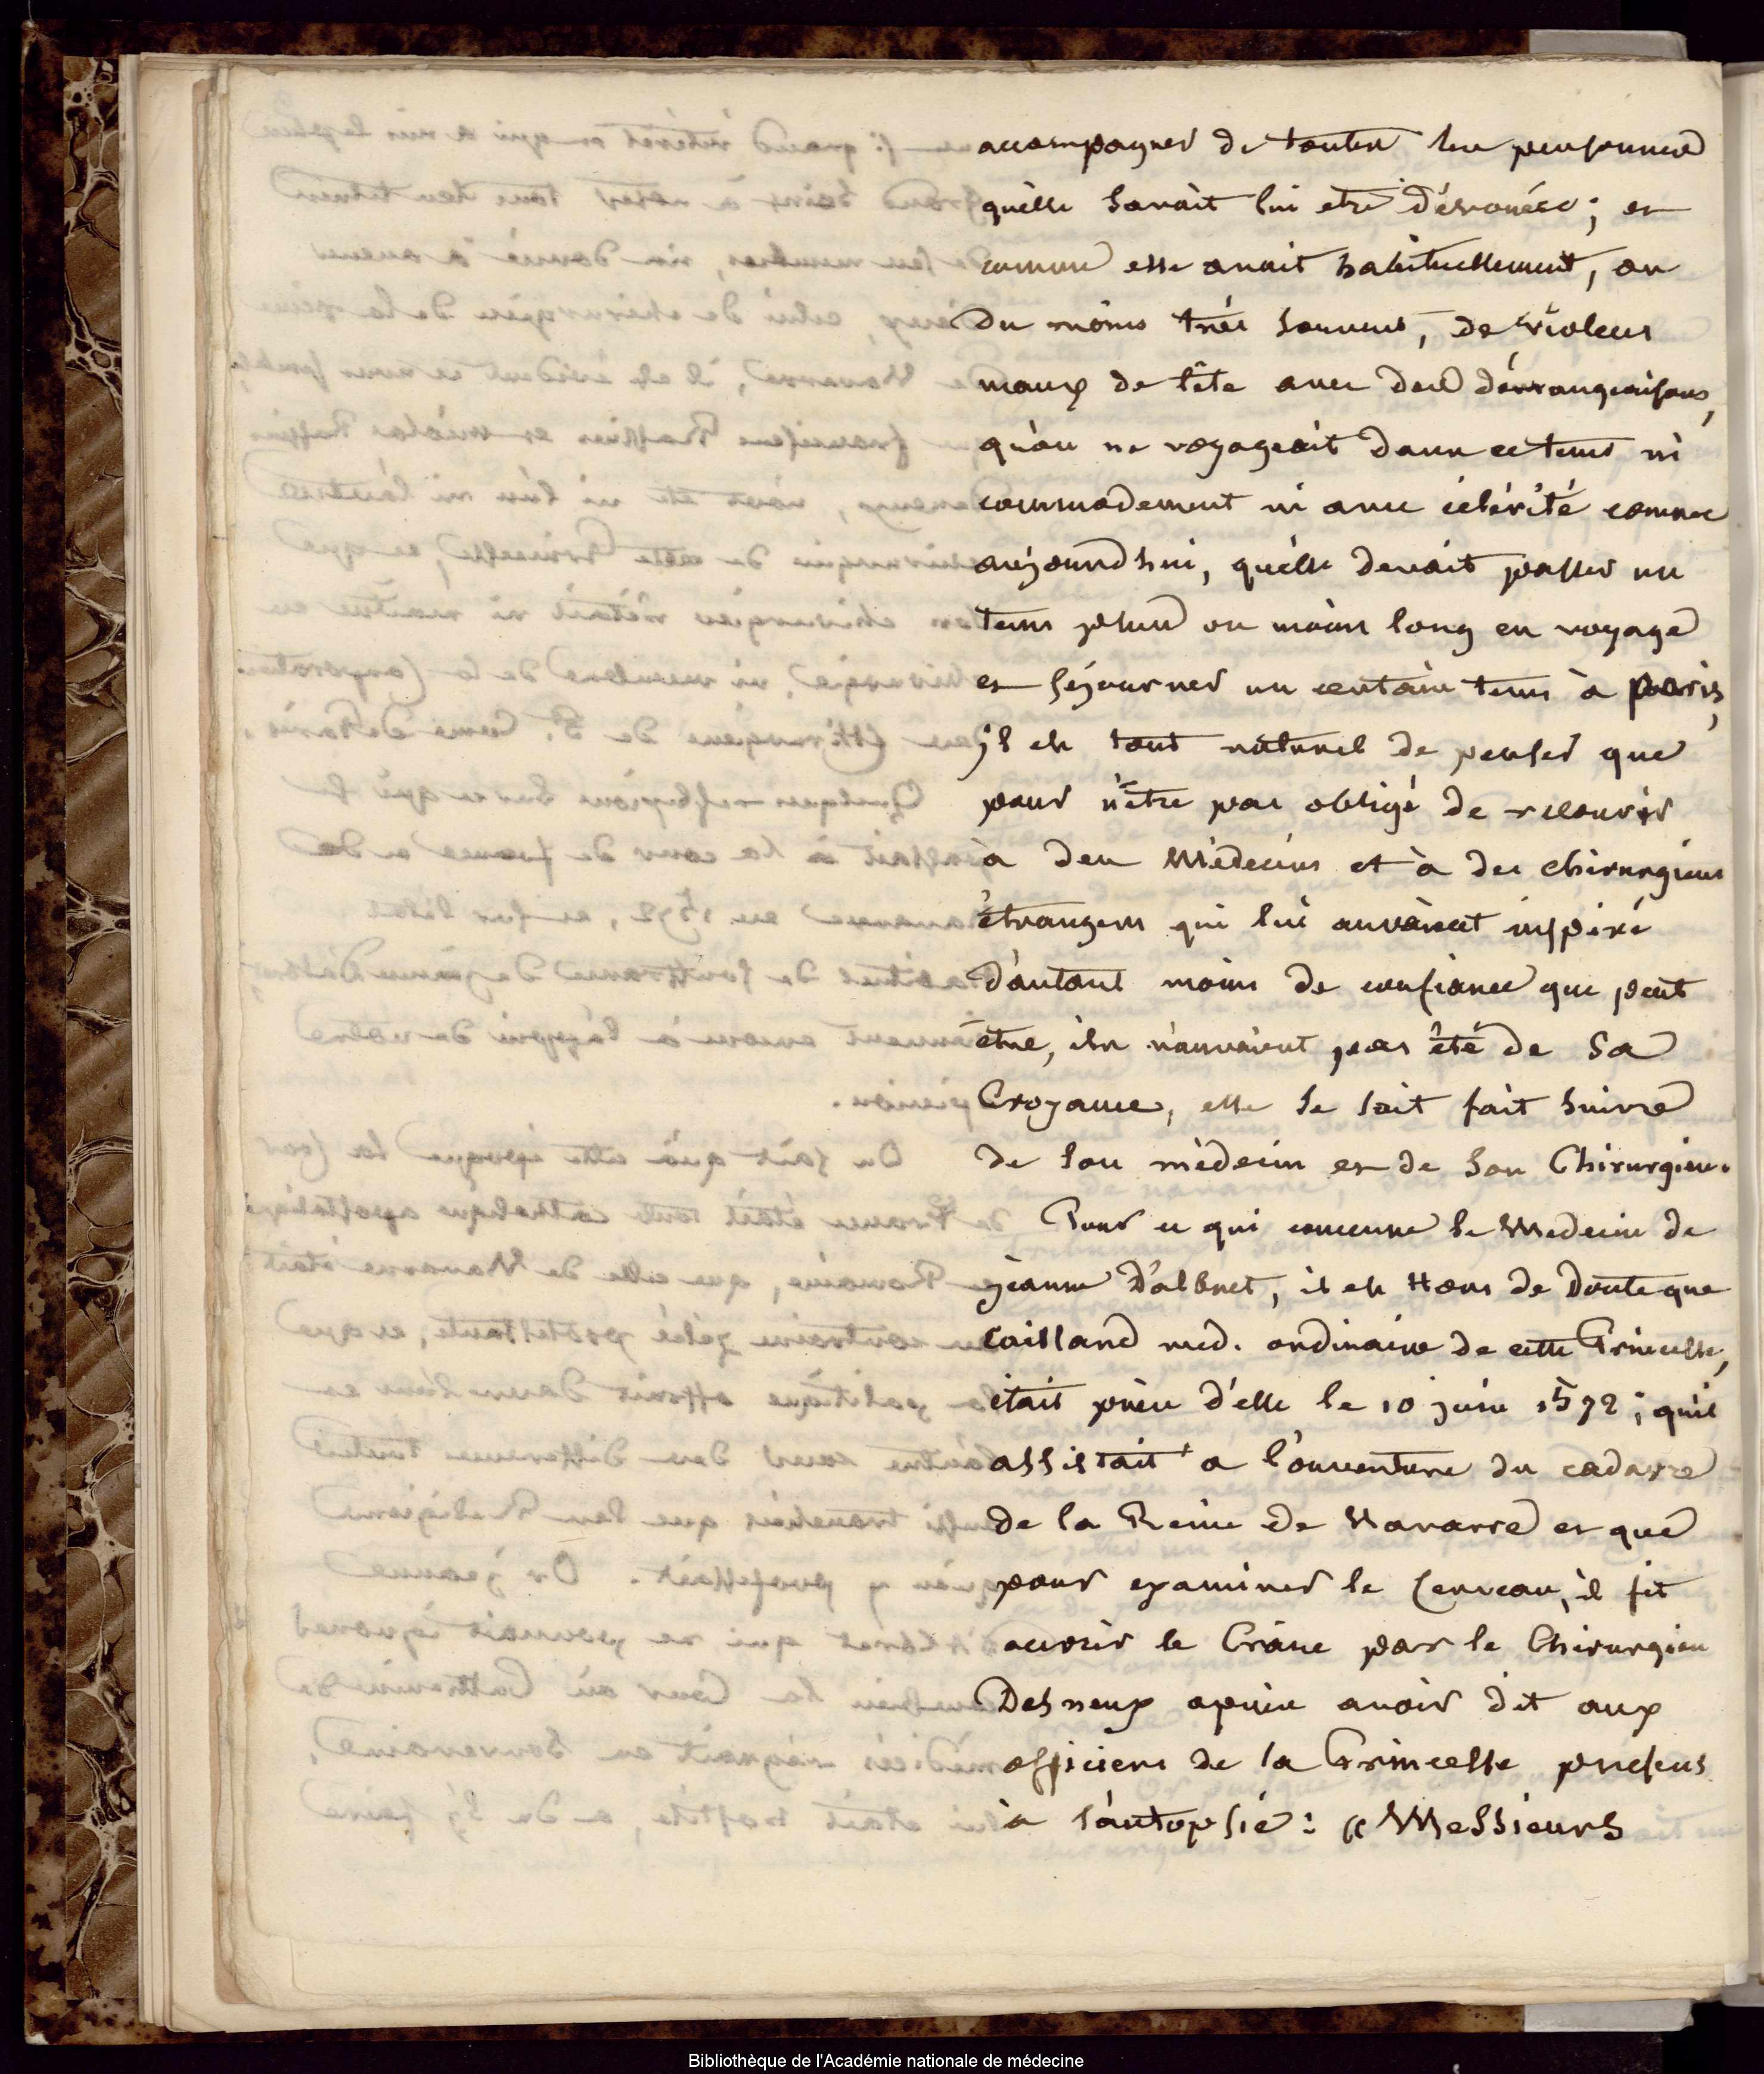 accompagner de toutes les personnes
qu'elle savait lui etre dévouées; et
comme elle avait habituellement, ou
du moins très souvent, de violens
maux de tête avec des démangeaisons,
qu'on ne voyageait dans ce tems ni
commodement ni avec célérité comme
aujourd'hui, qu'elle devait passer un
tems plus ou moins long en voyage
et séjourner un certain tems à paris,
il est tout naturel de penser que
pour n'être pas obligé de recourir
à des Médecins et à des chirurgiens
étrangers qui lui auraient inspiré
d'autant moins de confiance que peut
être, ils n'auraient pas été de sa
Croyance, elle se soit fait suivre
de son médecin et de son Chirurgien.
Pour ce qui concerne le Medecin de
jeanne D'albret, il est Hors de Doute que
Caillard med. ordinaire de cette Princesse,
était près d'elle le 10 juin 1572; qu'il
assistait a l'ouverture du cadavre
de la Reine de Navarre et que
pour examiner le Cerveau, il fit
ouvrir le Crâne par le Chirurgien
Desneux après avoir dit aux
officiers de la Princesse présens
à l'autopsie: « Messieurs
Bibliothèque de l'Académie nationale de médecine